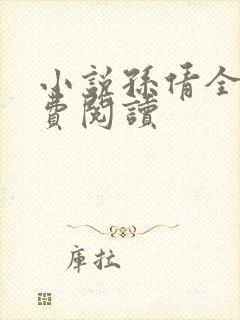 小說孫倩全
費閱讀
庫拉